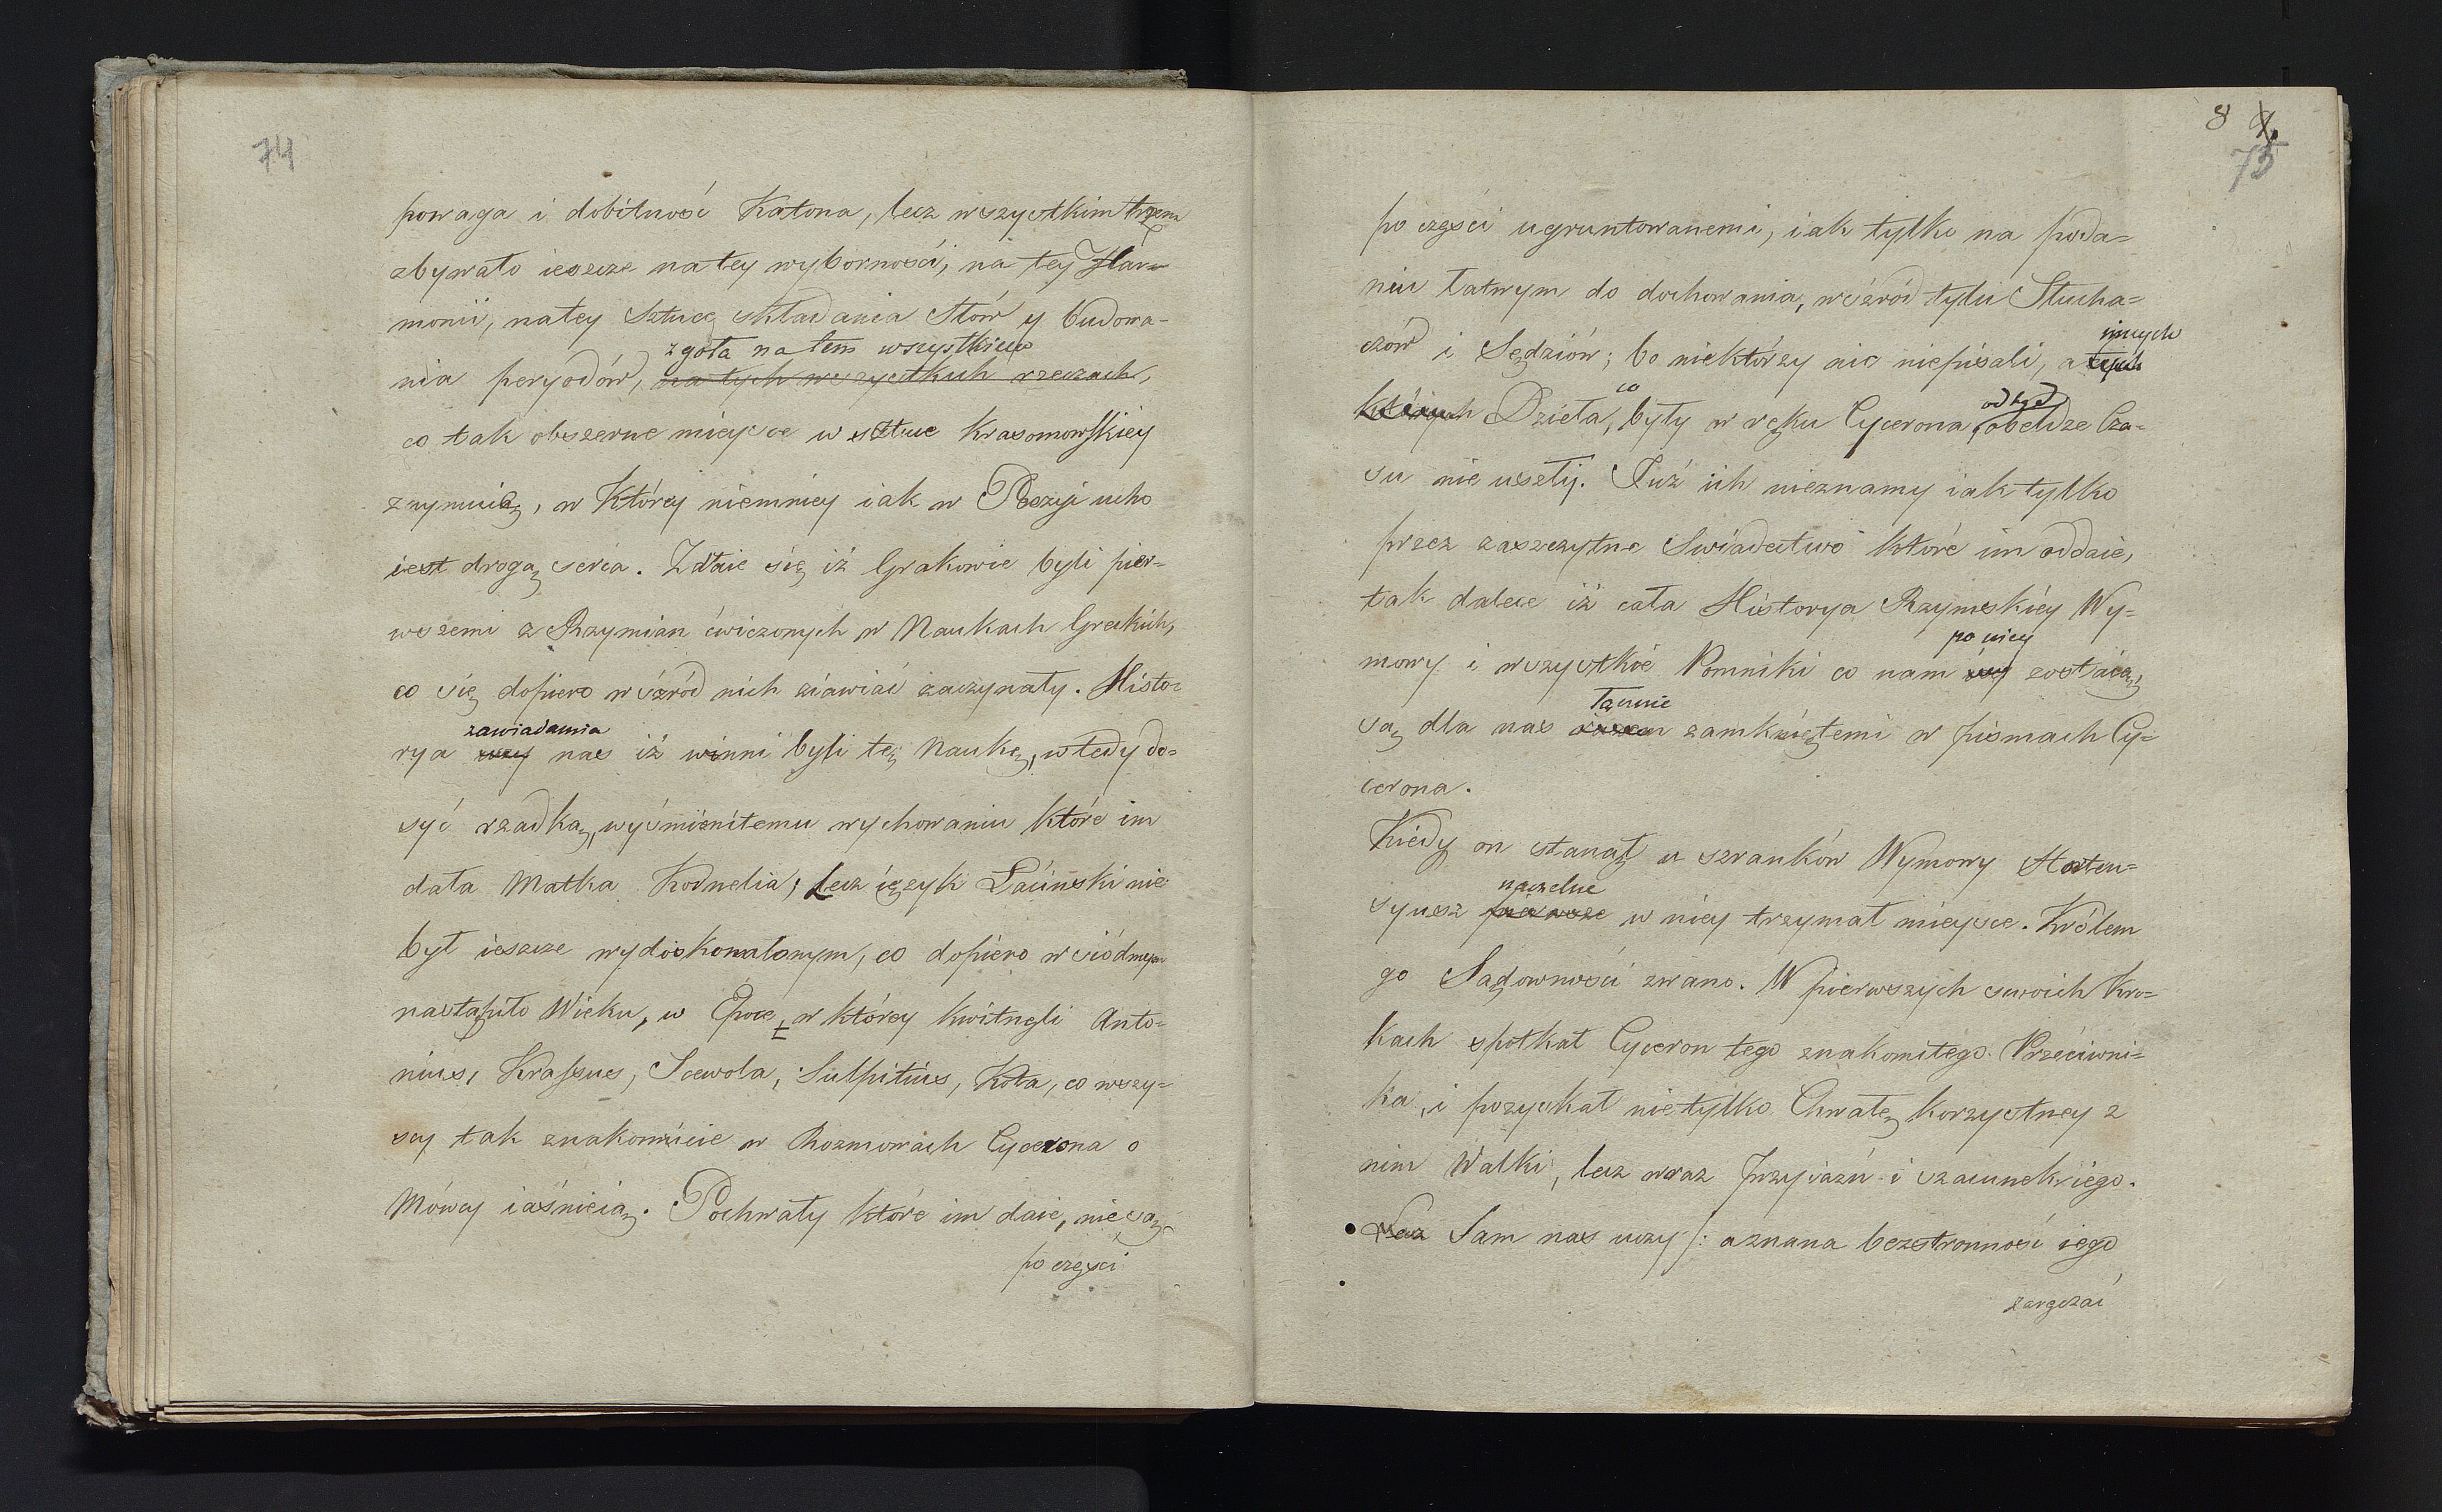 74
powaga i dobitność Katona, lecz wszystkim trzem
zbywało ieszcze na tey wyborności, na tey Har=
monii, na tey Sztuce składania Słów y budowa-
zgoła na tem wszystkiem
nia peryodów, na tych wszystkich rzeczach,
co tak obszerne mieysce w sztuce Krasomowskiey
zaymuią, w Którey niemniey iak w Poezyi ucho
iest drogą serca. Zdaie się iż Grakowie byli pier-
wszemi z Rzymian ćwiczonych w Naukach Greckich,
co się dopiero wśzród nich ziawiać zaczynały. Histo=
zawiadamia
rya uczy nas iż winni byli tę Naukę, wtedy do=
syć rzadką, wyśmienitemu wychowaniu które im
dała Matka Kornelia; Lecz ięzyk Łaciński nie
był ieszcze wydoskonalonym, co dopiero w siódmym
nastąpiło Wieku, w Epoce, w którey kwitnęli Anto=
nius, Krassus, Scewola, Sulpitius, Kota, co wszy=
scy tak znakomicie w Rozmowach Cycerona o
Mówcy iaśnieią. Pochwały które im daie, nie są
po częsci
8 9.
75
po częsci ugruntowanemi, iak tylko na poda=
niu łatwym do dochowania, wśzród tylu Słucha=
czów i Sędziów; bo niektórzy nic niepisali, a tych
innych
których Dzieła, co były w ręku Cycerona, obeldze Cza=
odtąd
su nie uszły. Już ich nieznamy iak tylko
przez zaszczytne Swiadectwo które im oddaie,
tak dalece iż cała Historya Rzymskiéy Wy=
po niey
mowy i wszystkie Pomniki co nam iey zostaią,
Łącznie
są dla nas razem zamkniętemi w pismach Cy=
cerona.
Kiedy on stanął u szranków Wymowy Horten=
naczelne
syusz pierwsze w niey trzymał mieysce. Królem
go Sądowności zwano. W pierwszych swoich Kro=
kach spotkał Cyceron tego znakomitego Przeciwni=
ka, i pozyskał nietylko Chwałę korzystney z
nim Walki, lecz wraz przyiazń i szacunek iego.
Lecz Sam nas uczy /: a znana bezstronność iego
zaręczać